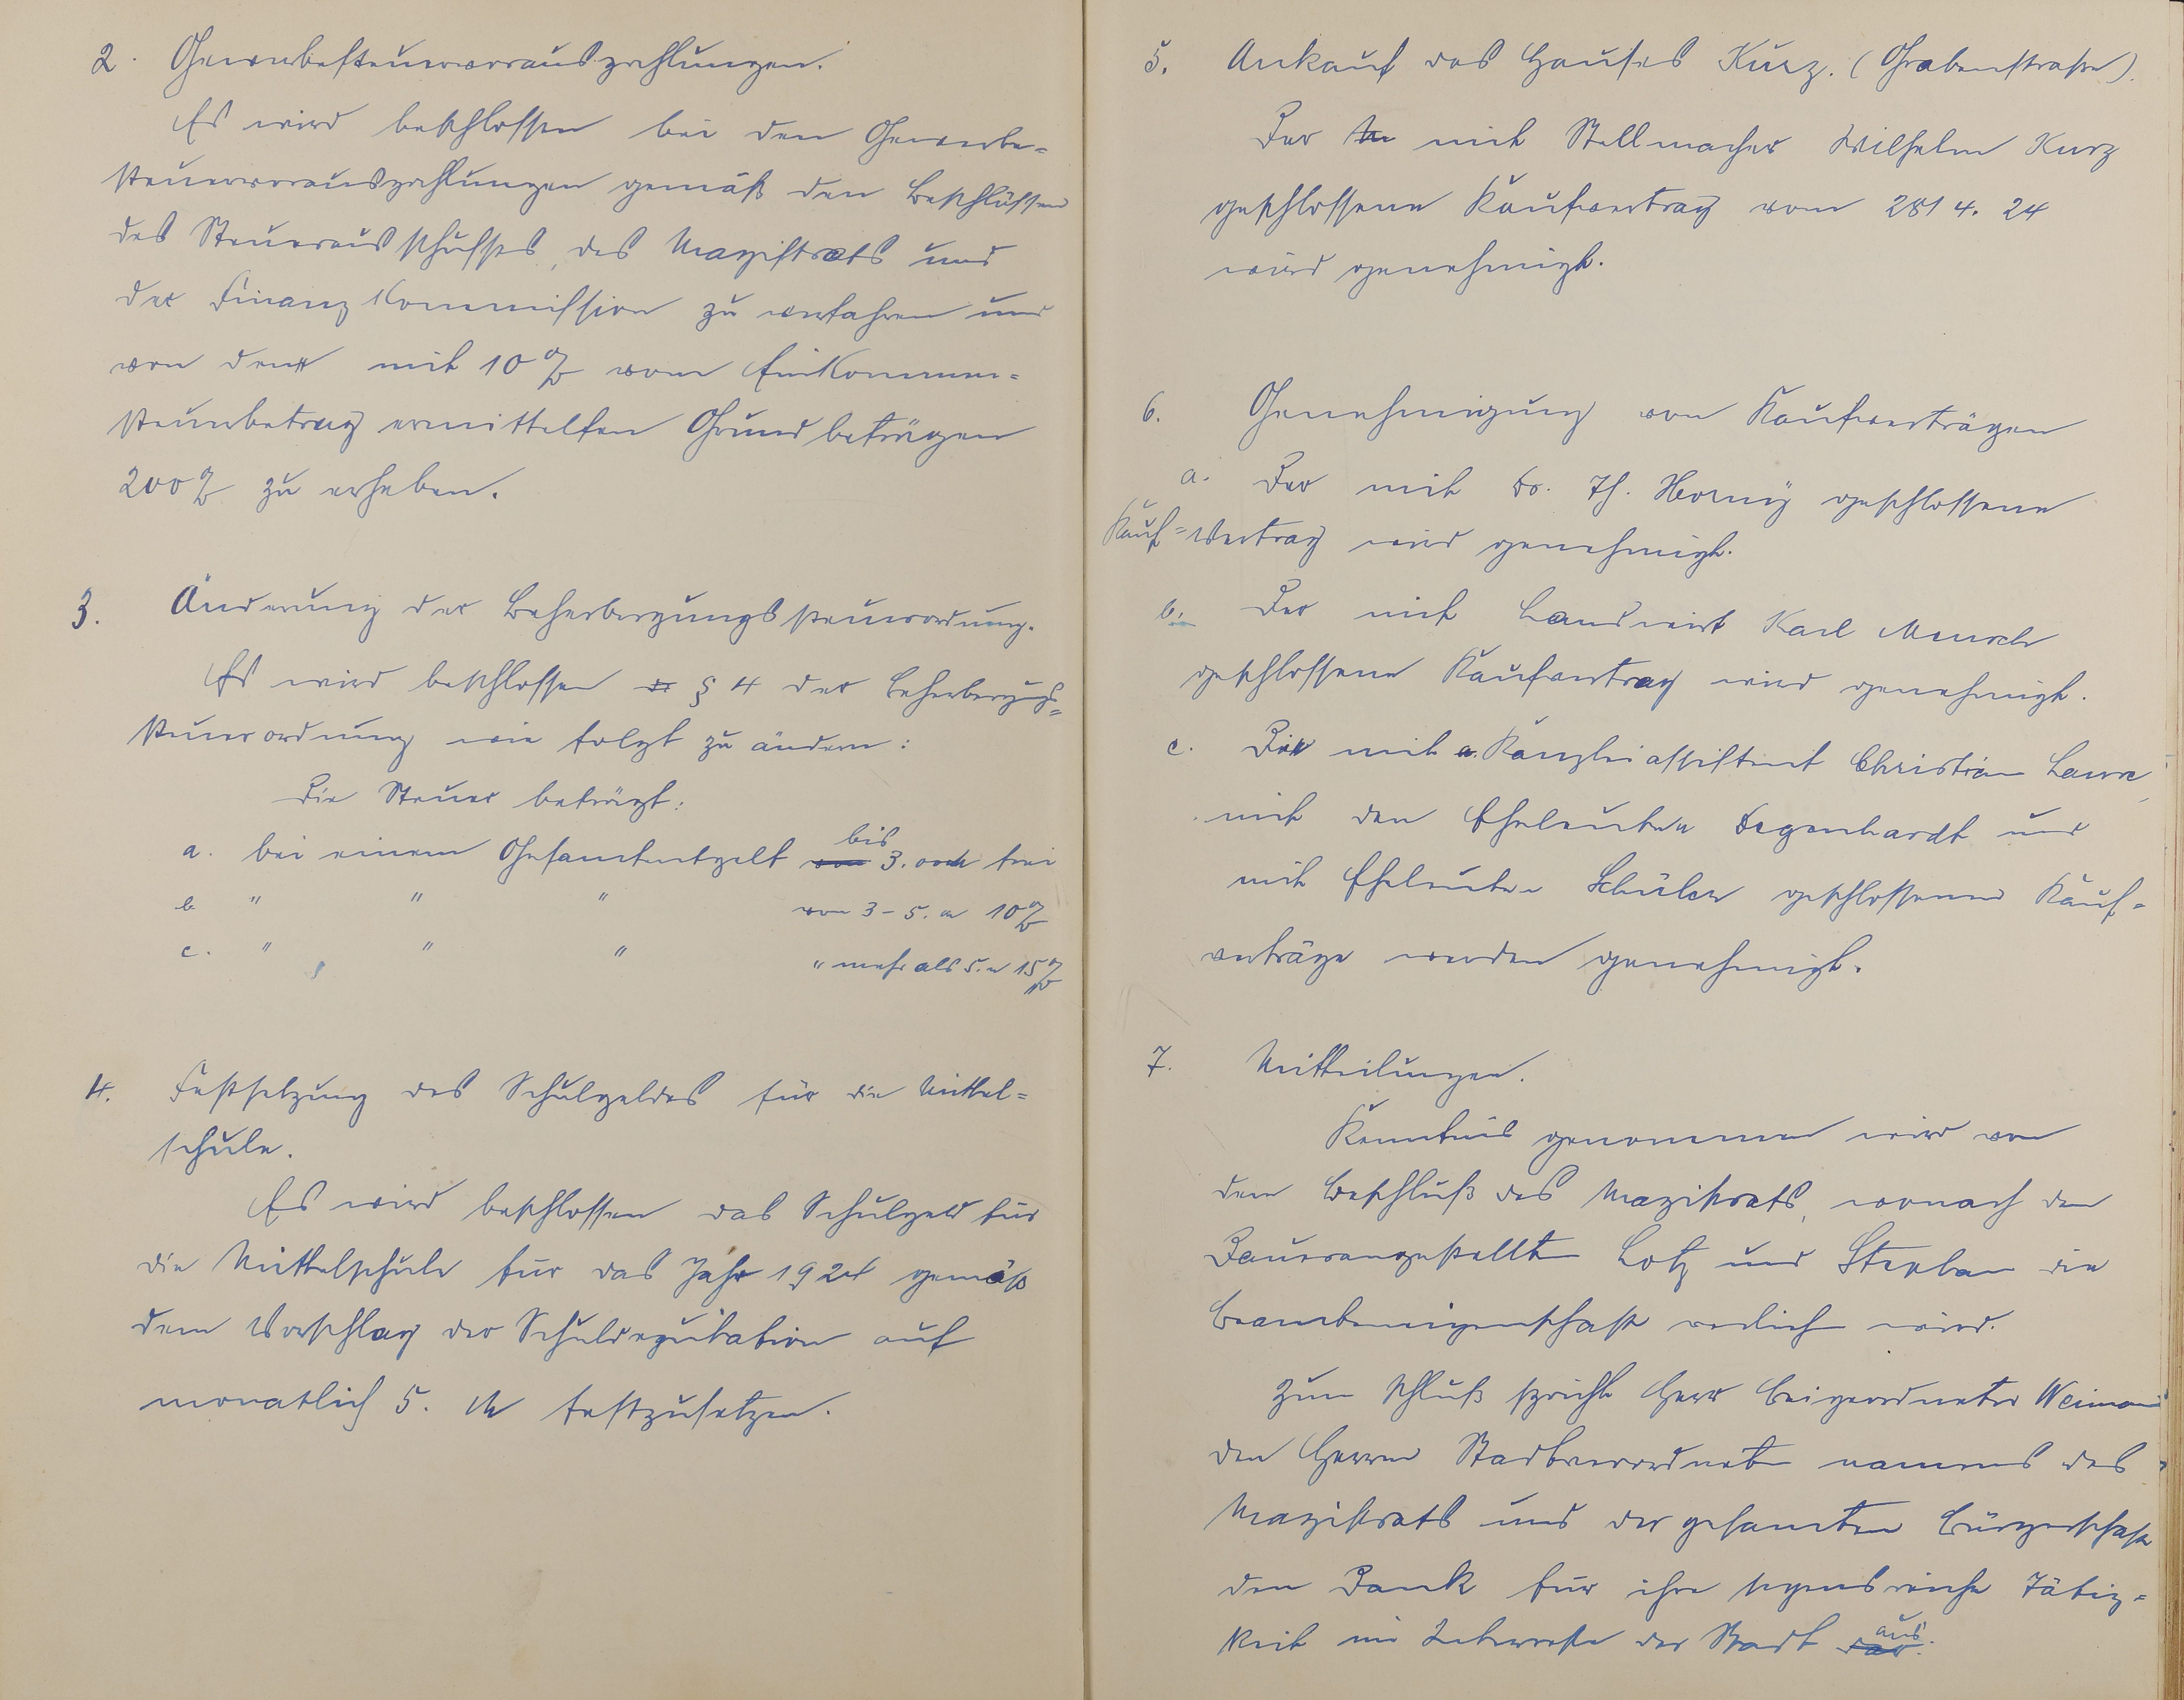 2. Gewerbesteuervorauszahlungen.
Es wird beschlossen bei den Gewerbe=
steuervorauszahlungen gemäß den Beschlüssen
des Steuerausschusses, des Magistrats und
der Finanzkommission zu verfahren und
von den mit 10 % vom Einkommen=
steuerbetrag ermittelten Grundbeträgen
200 % zu erheben.
3. Änderung der Beherbergungssteuerordnung.
Es wird beschlossen § 4 der Beherbergungs=
steuerordnung wie folgt zu ändern:
Die Steuer beträgt:
a. bei einem Gesamtentgelt bis 3.00 M frei
b " " " von 3 – 5. M 10 %
c. " " " " mehr als 5. M 15 %
4. Festsetzung des Schulgeldes für die Mittel=
schule.
Es wird beschlossen das Schulgeld für
die Mittelschule für das Jahr 1924 gemäß
dem Vorschlag der Schuldeputation auf
monatlich 5. M festzusetzen.
5. Ankauf des Hauses Kurz. (Grabenstraße).
Der mit Stellmacher Wilhelm Kurz
geschlossene Kaufvertrag vom 28/4. 24
wird genehmigt.
6. Genehmigung von Kaufverträgen
a. Der mit Dr. Th. Hornÿ geschlossene
Kauf=Vertrag wird genehmigt.
b. Der mit Landwirt Karl Mensch
geschlossene Kaufvertrag wird genehmigt.
c. Die mit Kanzleiassistent Christian
mit den Eheleuten Degenhardt und
mit Eheleuten Schüler geschlossenen Kauf=
verträge werden genehmigt.
7. Mitteilungen.
Kenntnis genommen wird von
dem Beschluß des Magistrats, wonach den
Dauerangestellten Lotz und Stephan die
Beamteneigenschaft verliehen wird.
Zum Schluß spricht Herr Beigeordneter
den Herren Stadtverordneten namens des
Magistrats und der gesamten Bürgerschaft
den Dank für ihre segensreiche Tätig=
keit im Interesse der Stadt aus.